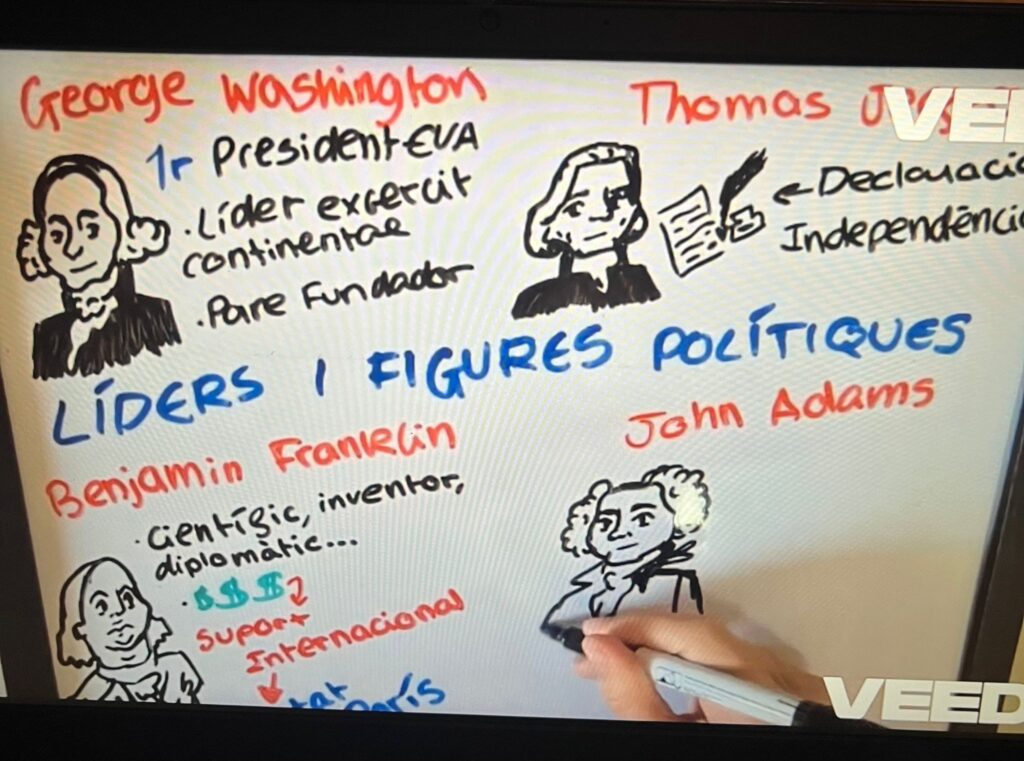 George Washington
1r President EUA
· Líder exercit
continental
· Pare Fundador
Thomas
VEED
← Declaració
Independència
LÍDERS I FIGURES POLÍTIQUES
Benjamin Franklin
· científic, inventor,
diplomàtic...
· $$$
suport
Internacional
París
John Adams
VEED